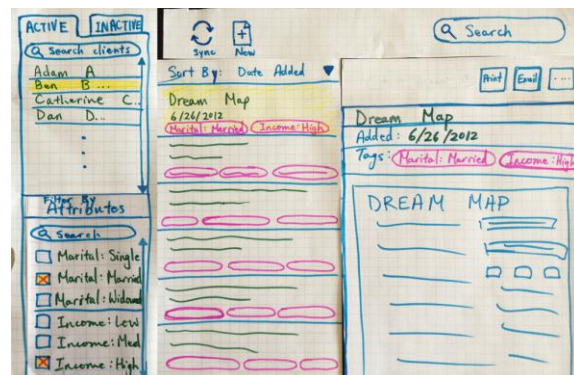 ACTIVE
INACTIVE
Search clients
Adam A
Ben B...
Catherine C..
Dan D..
Filter By
Attributes
Search
Marital: Single
Marital: Married
Marital: Widowed
Income: Low
Income: Med
Income: High
Sync
New
Sort By: Date Added
Dream Map
6/26/2012
Marital: Married
Income: High
Search
Print
Email
....
Dream Map
Added: 6/26/2012
Tags: Marital: Married Income: High
DREAM MAP